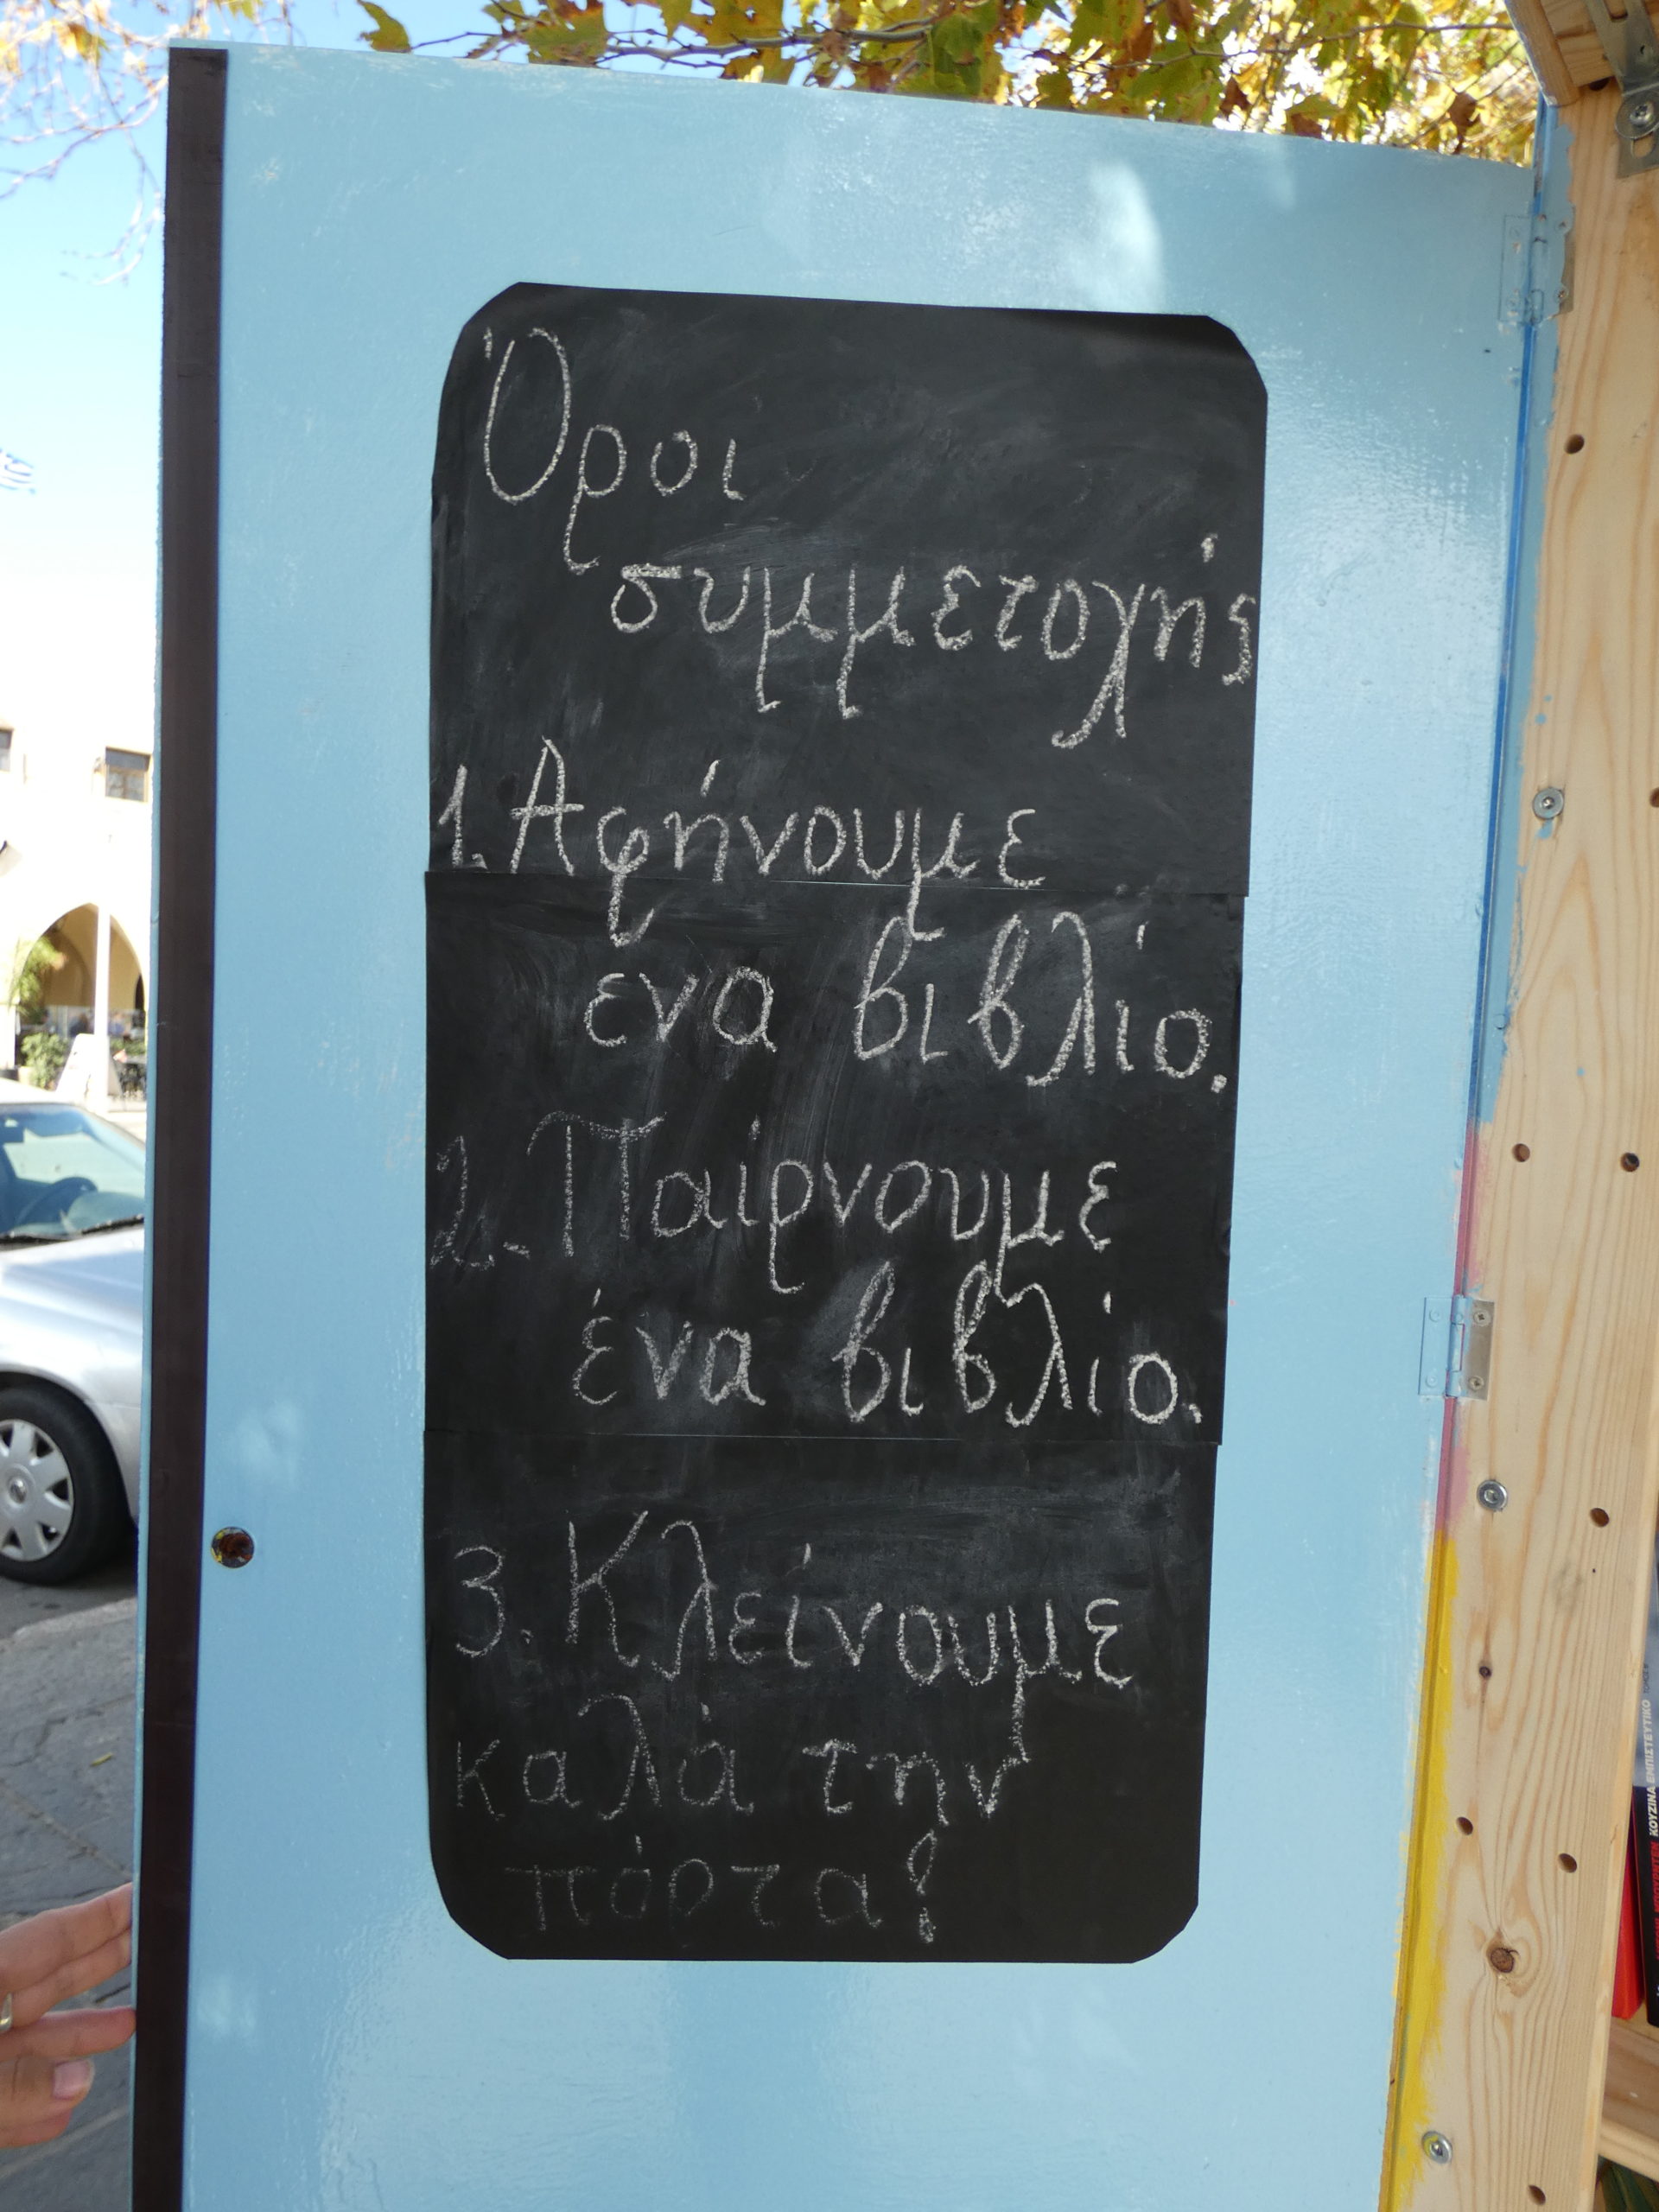 Όροι
συμμετοχής
1. Αφήνουμε
ενα βιβλίο.
2. Παίρνουμε
ένα βιβλίο.
3. Κλείνουμε
καλά την
πόρτα!
ΚΟΥΖΙΝΑ ΕΜΠΙΣΤΕΥΤΙΚΟ